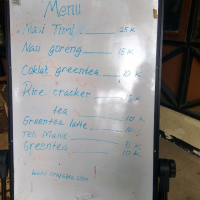 Menu
Nasi Timbel 25 K
Nasi goreng 15 K
Coklat greentea 10 K
Rice cracker
tea
Greentea latte 10 K
Teh Manis
Greentea 10 K